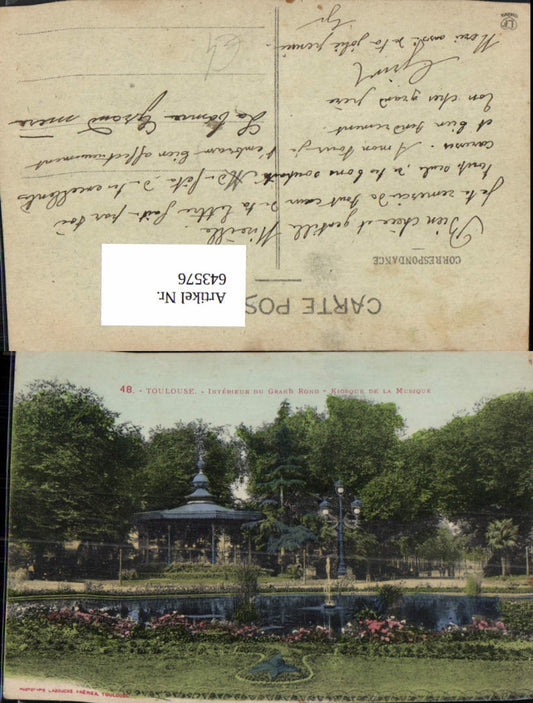 CARTE POS
CORRESPONDANCE
Artikel Nr.
643576
Bien chère et gentille Mireille.
Je te remercie de tout cœur de ta lettre faite par toi
toute seule, de tes bons souhaits de fête, de tes excellents
caresses. A mon tour je t'embrasse bien affectueusement
et bien tendrement.
Ton cher grand père
Ta bonne Grand mère
Merci aussi de ta jolie pensée.
48. - TOULOUSE. - Intérieur du Grand Rond - Kiosque de la Musique
PHOTOTYPIE LABOUCHE FRÈRES, TOULOUSE